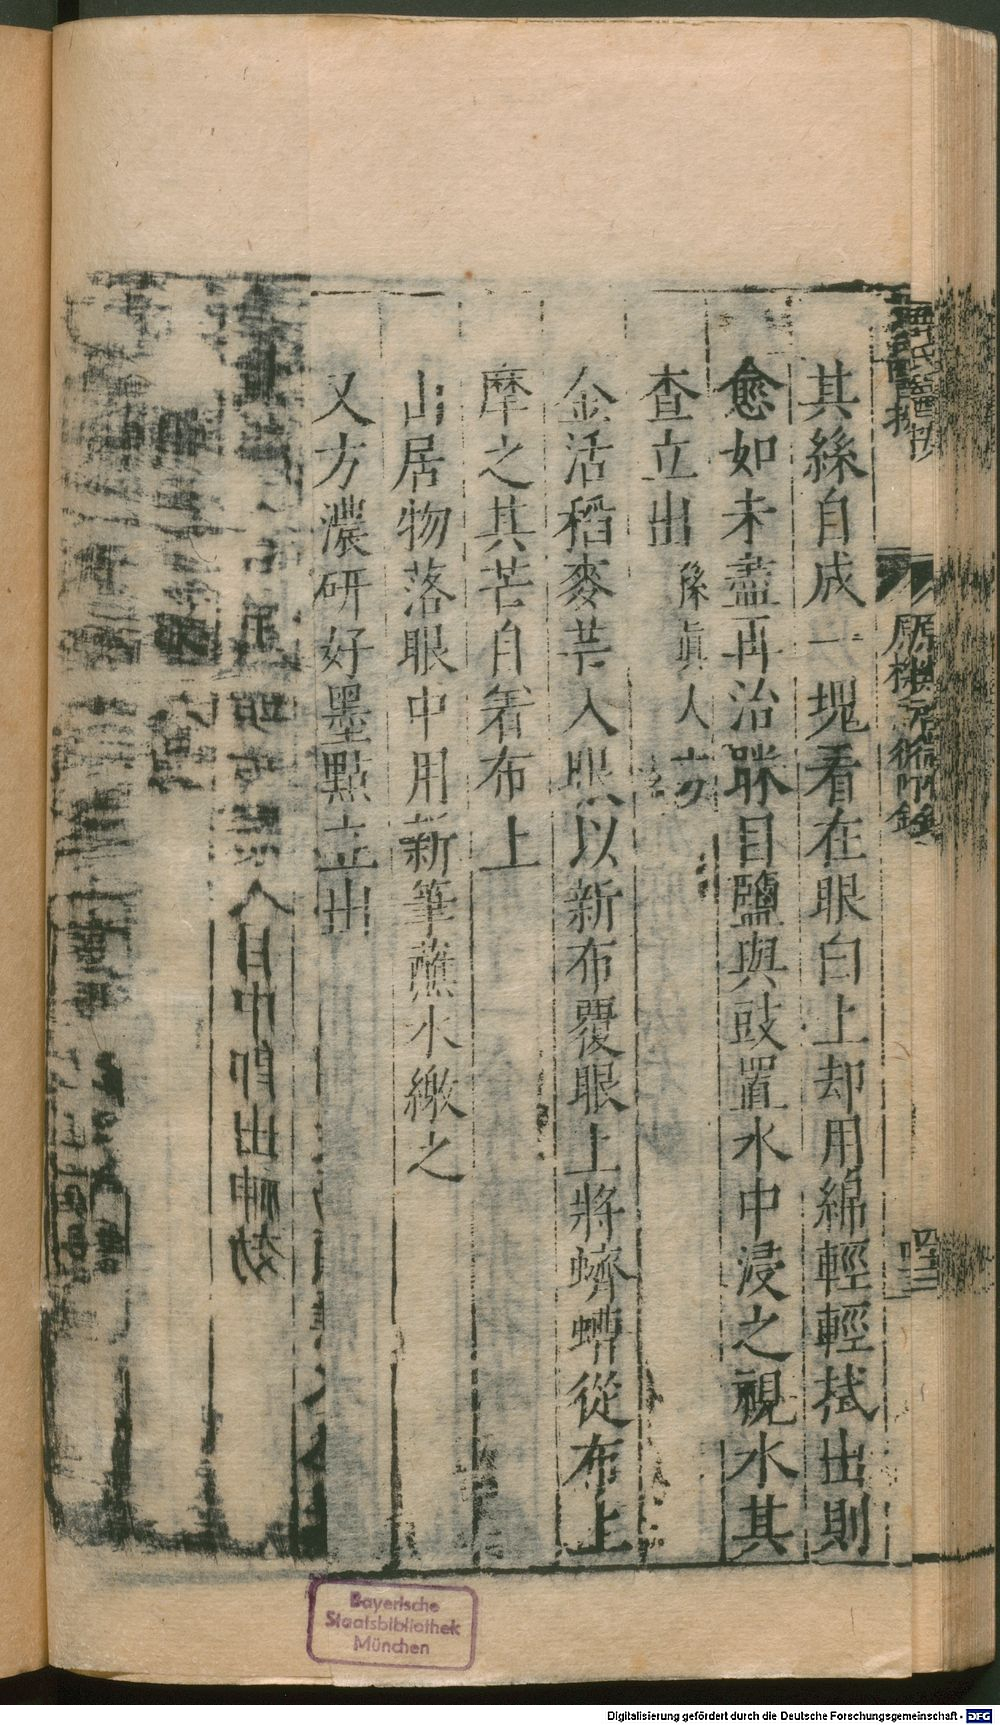 其絲自成一塊看在眼白上却用綿輕輕拭出則
愈如未盡再治眯目鹽與豉置水中浸之視水其
查立出 孫眞人方
金活稻麥芒入眼以新布覆眼上將蠐螬從布上
摩之其芒自着布上
山居物落眼中用新筆蘸水繳之
又方濃研好墨點立出
入目中即出神効
薛氏醫按
原機啓微附錄
四十三
Bayerische
Staatsbibliothek
München
Digitalisierung gefördert durch die Deutsche Forschungsgemeinschaft - DFG